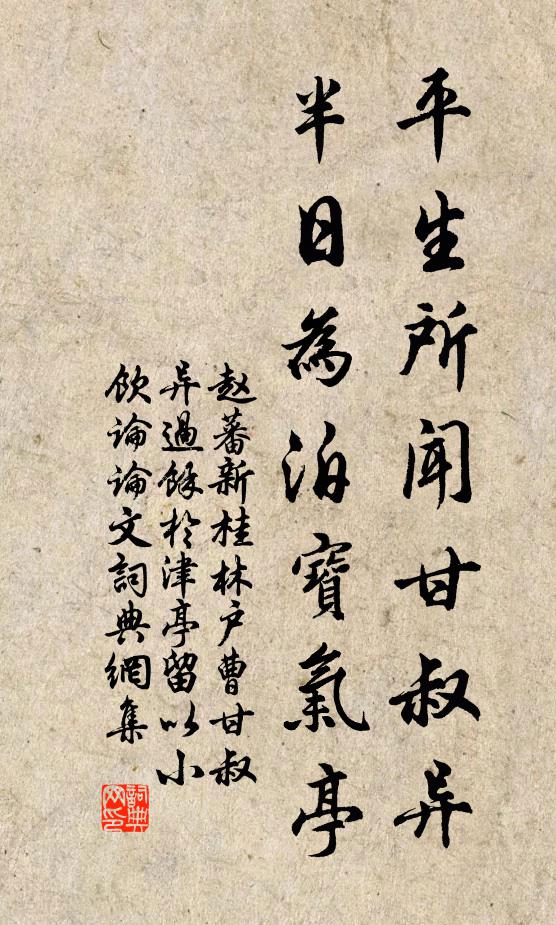 平生所聞甘叔异
半日為泊寶氣亭
赵蕃新桂林户曹甘叔
异過餘於津亭留以小
飲論論文詞典網集
詞典
网印